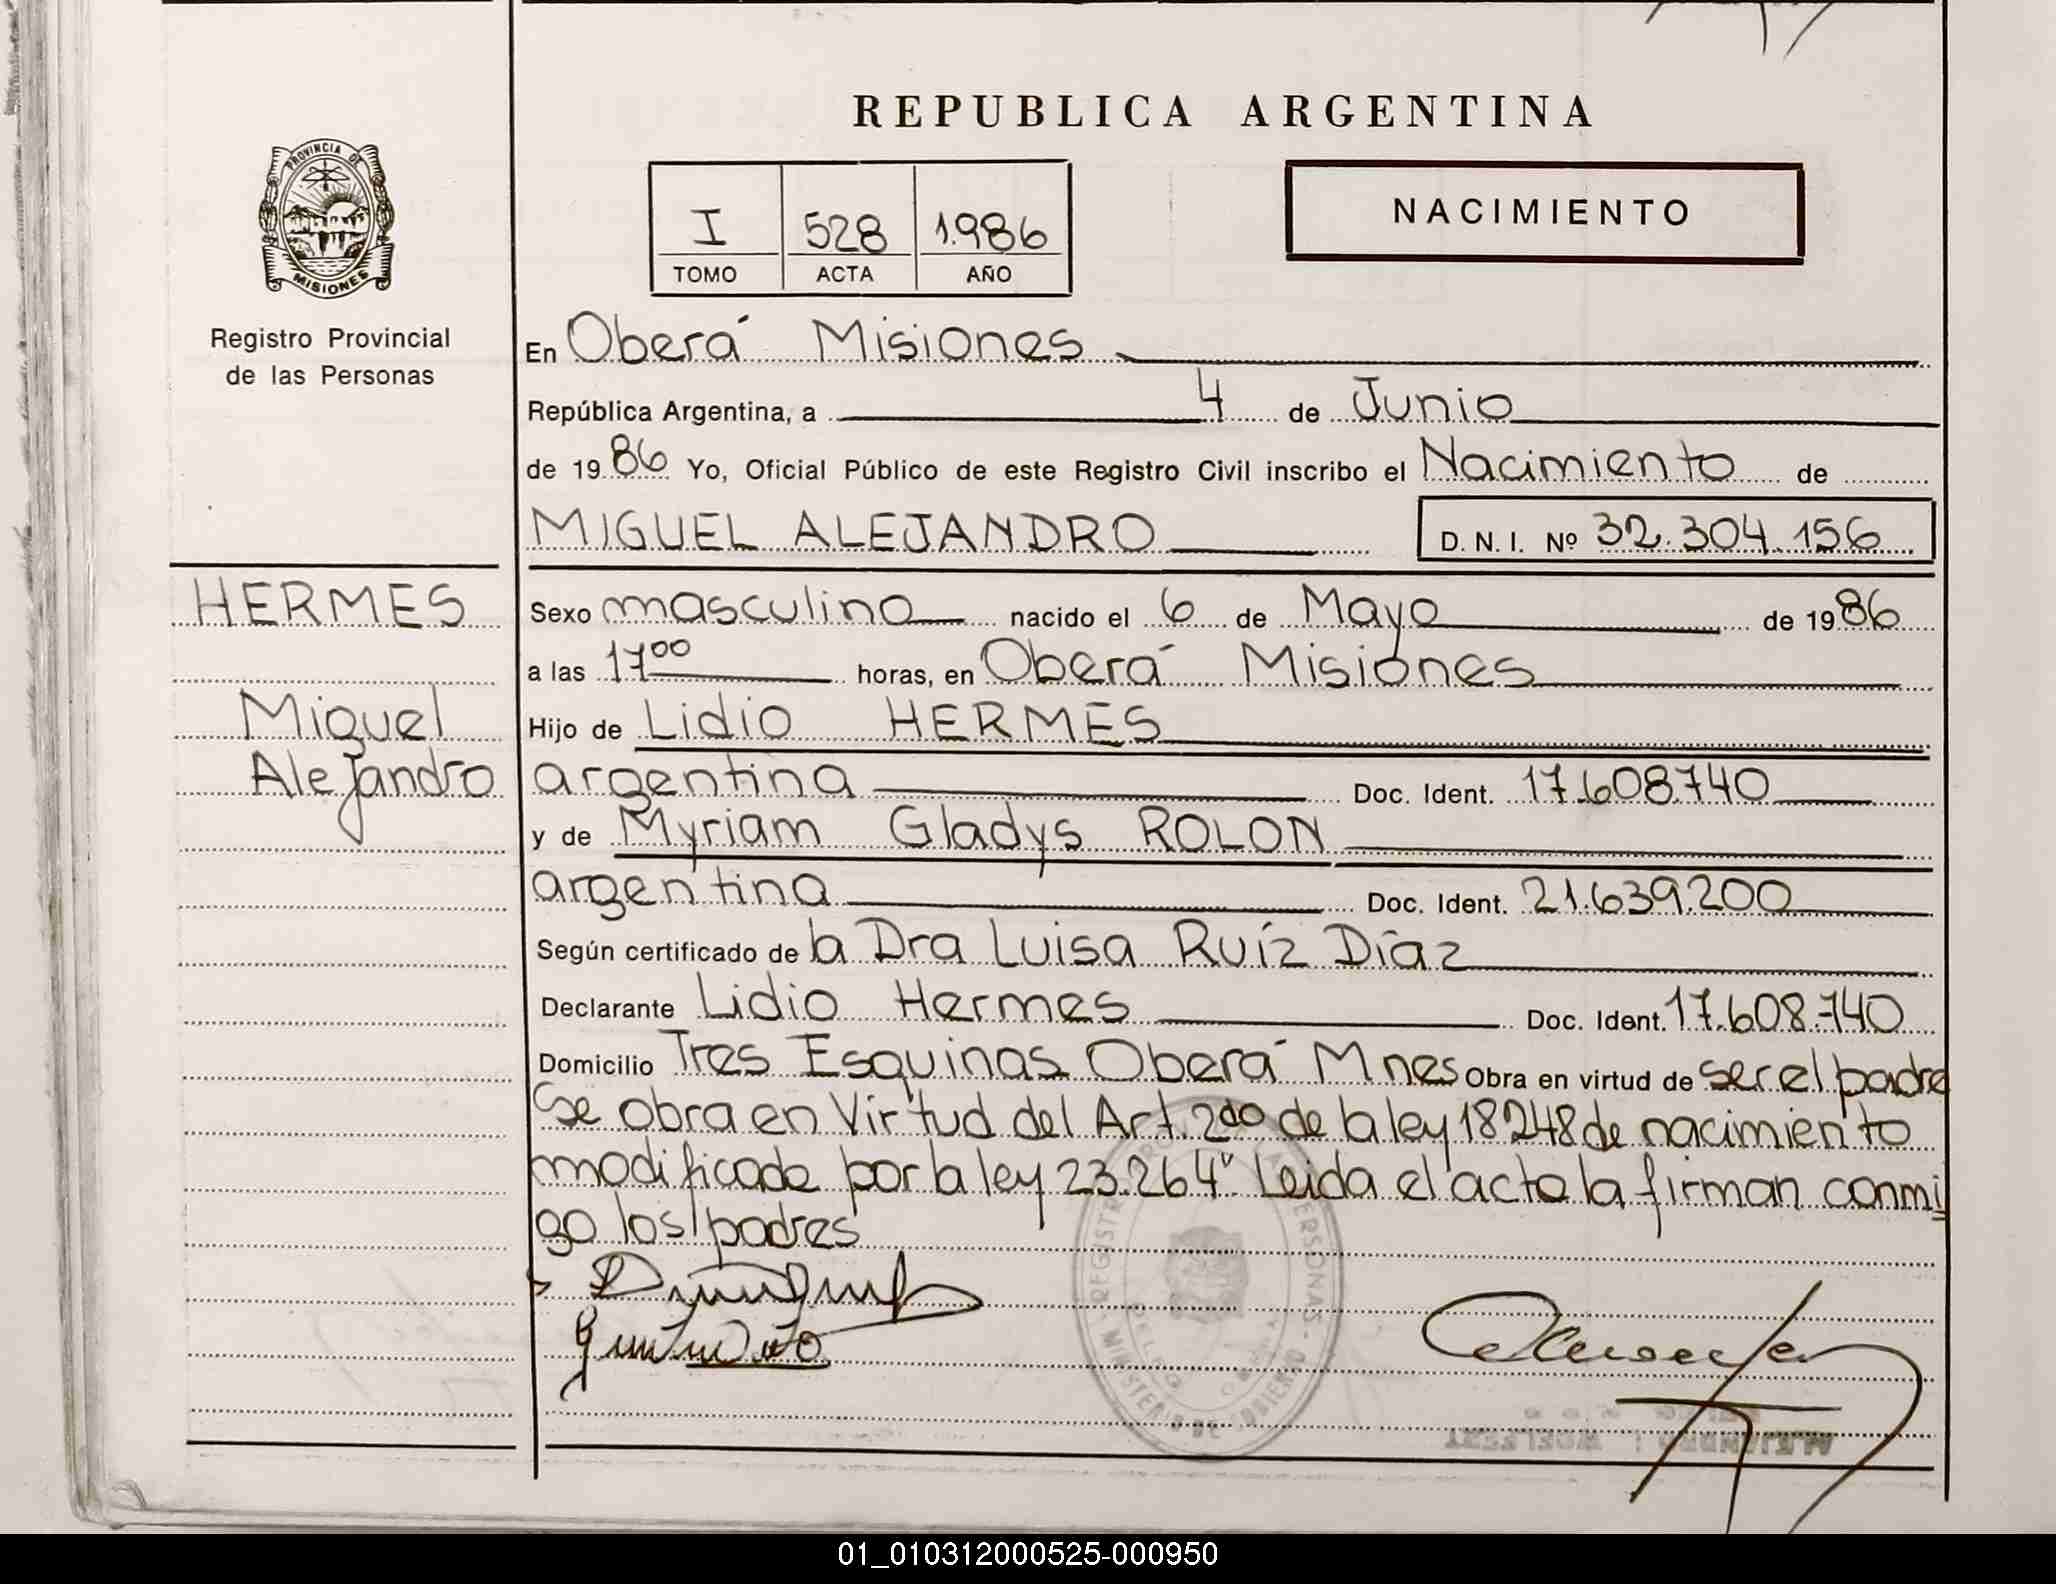 REPUBLICA ARGENTINA
PROVINCIA DE
MISIONES
Registro Provincial
de las Personas
I 528 1.986
TOMO ACTA AÑO
NACIMIENTO
En Oberá Misiones
República Argentina, a 4 de Junio
de 1986 Yo, Oficial Público de este Registro Civil inscribo el Nacimiento de
MIGUEL ALEJANDRO D.N.I. Nº 32.304.156
HERMES
Miguel
Alejandro
Sexo masculino nacido el 6 de Mayo de 1986
a las 17⁰⁰ horas, en Oberá Misiones
Hijo de Lidio HERMES
argentina Doc. Ident. 17.608.740
y de Myriam Gladys ROLON
argentina Doc. Ident. 21.639.200
Según certificado de la Dra Luisa Ruíz Díaz
Declarante Lidio Hermes Doc. Ident. 17.608.740
Domicilio Tres Esquinas Oberá Mnes Obra en virtud de ser el padre
Se obra en Virtud del Art. 2do de la ley 18248 de nacimiento
modificada por la ley 23.264". Leida el acta la firman conmi
go los padres
01_010312000525-000950